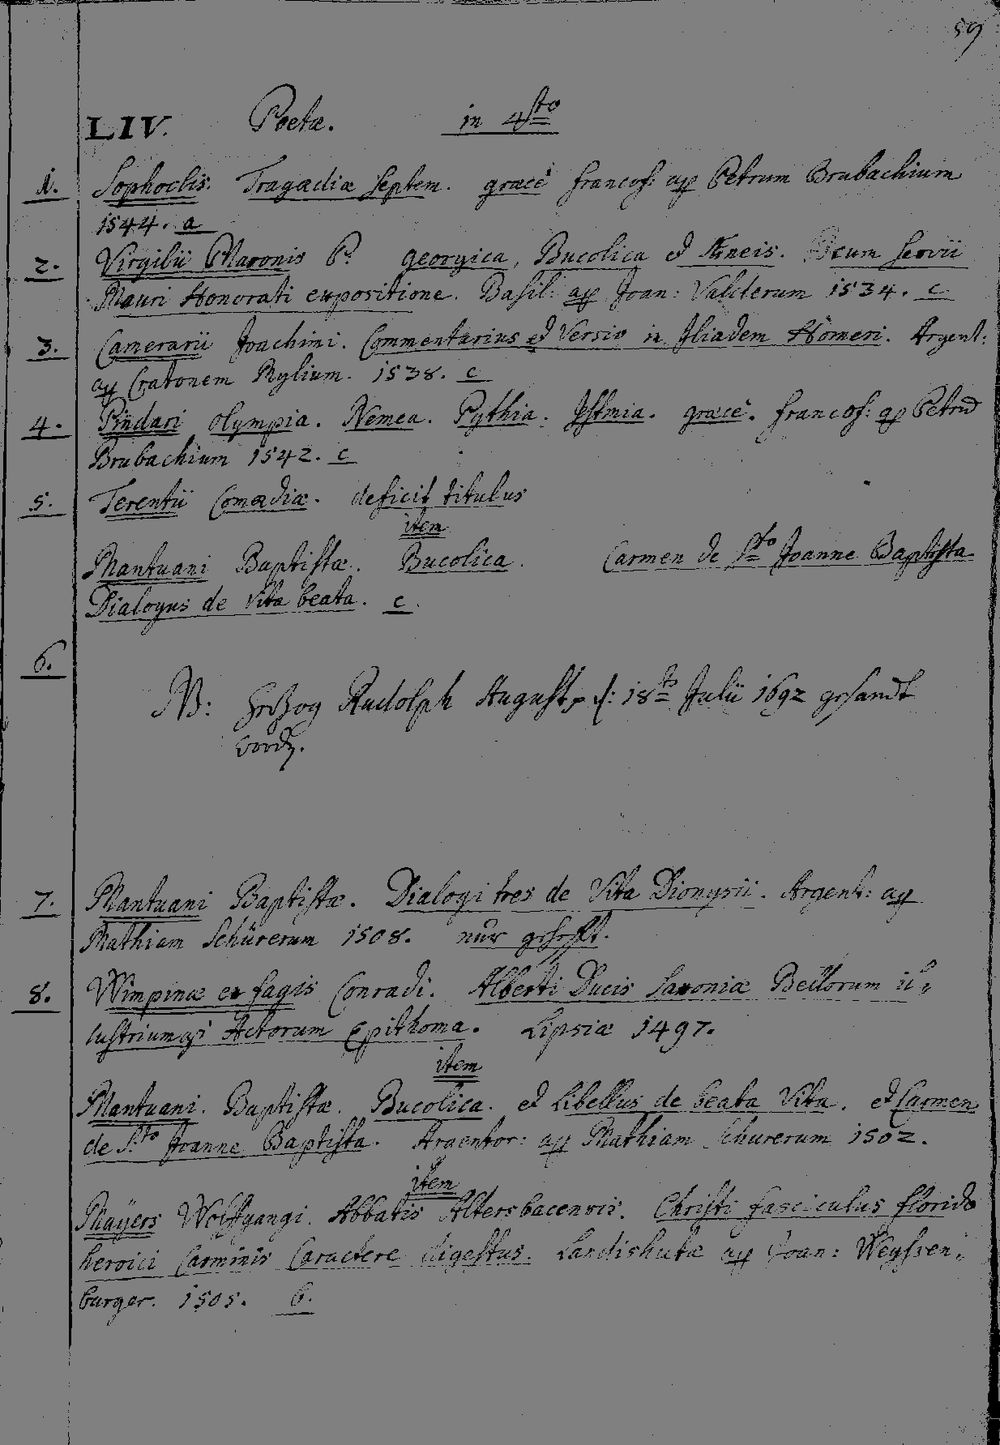 59
LIV. Poetæ. in 4sto
1. Sophoclis. Tragædiæ septem. græcè francof: ap Petrum Brubachium
1544. a
2. Virgilii Maronis P. georgica, Bucolica et Æneis. cum servii
Mauri Honorati expositione. Basil: ap Joan: Valderum 1534. c
3. Camerarii Joachimi. Commentarius et Versio in Iliadem Homeri. Argent:
ap Cratonem Mylium. 1538. c
4. Pindari olympia. Nemea. Pythia. Isthmia. græcè. francof: ap Petrū
Brubachium 1542. c
5. Terentii Comædiæ. deficit titulus
item
Mantuani Baptistæ. Bucolica. Carmen de Sto Joanne Baptista
Dialogus de Vita beata. c.
6.
NB: Hertzog Rudolph August 18 Julii 1692 gesandt
word.
7. Mantuani Baptistæ. Dialogi tres de Vita Dionysii. Argent: ap
Mathiam Schürerum 1508. nur gehefft.
8. Wimpinæ ex fagis Conradi. Alberti Ducis Saxoniæ Bellorum il-
lustriumq; Actorum Epithoma. Lipsiæ 1497.
item
Mantuani. Baptistæ. Bucolica. et Libellus de beata Vita. et Carmen
de Sto Joanne Baptista. Argentor: ap Mathiam Schurerum 1502.
item
Mayers Wolffgangi. Abbatis Altersbacensis. Christi fasciculus florido
heroici Carminis Caractere digestus. Landishutæ ap Joan: Weyssen-
burger. 1505. b.